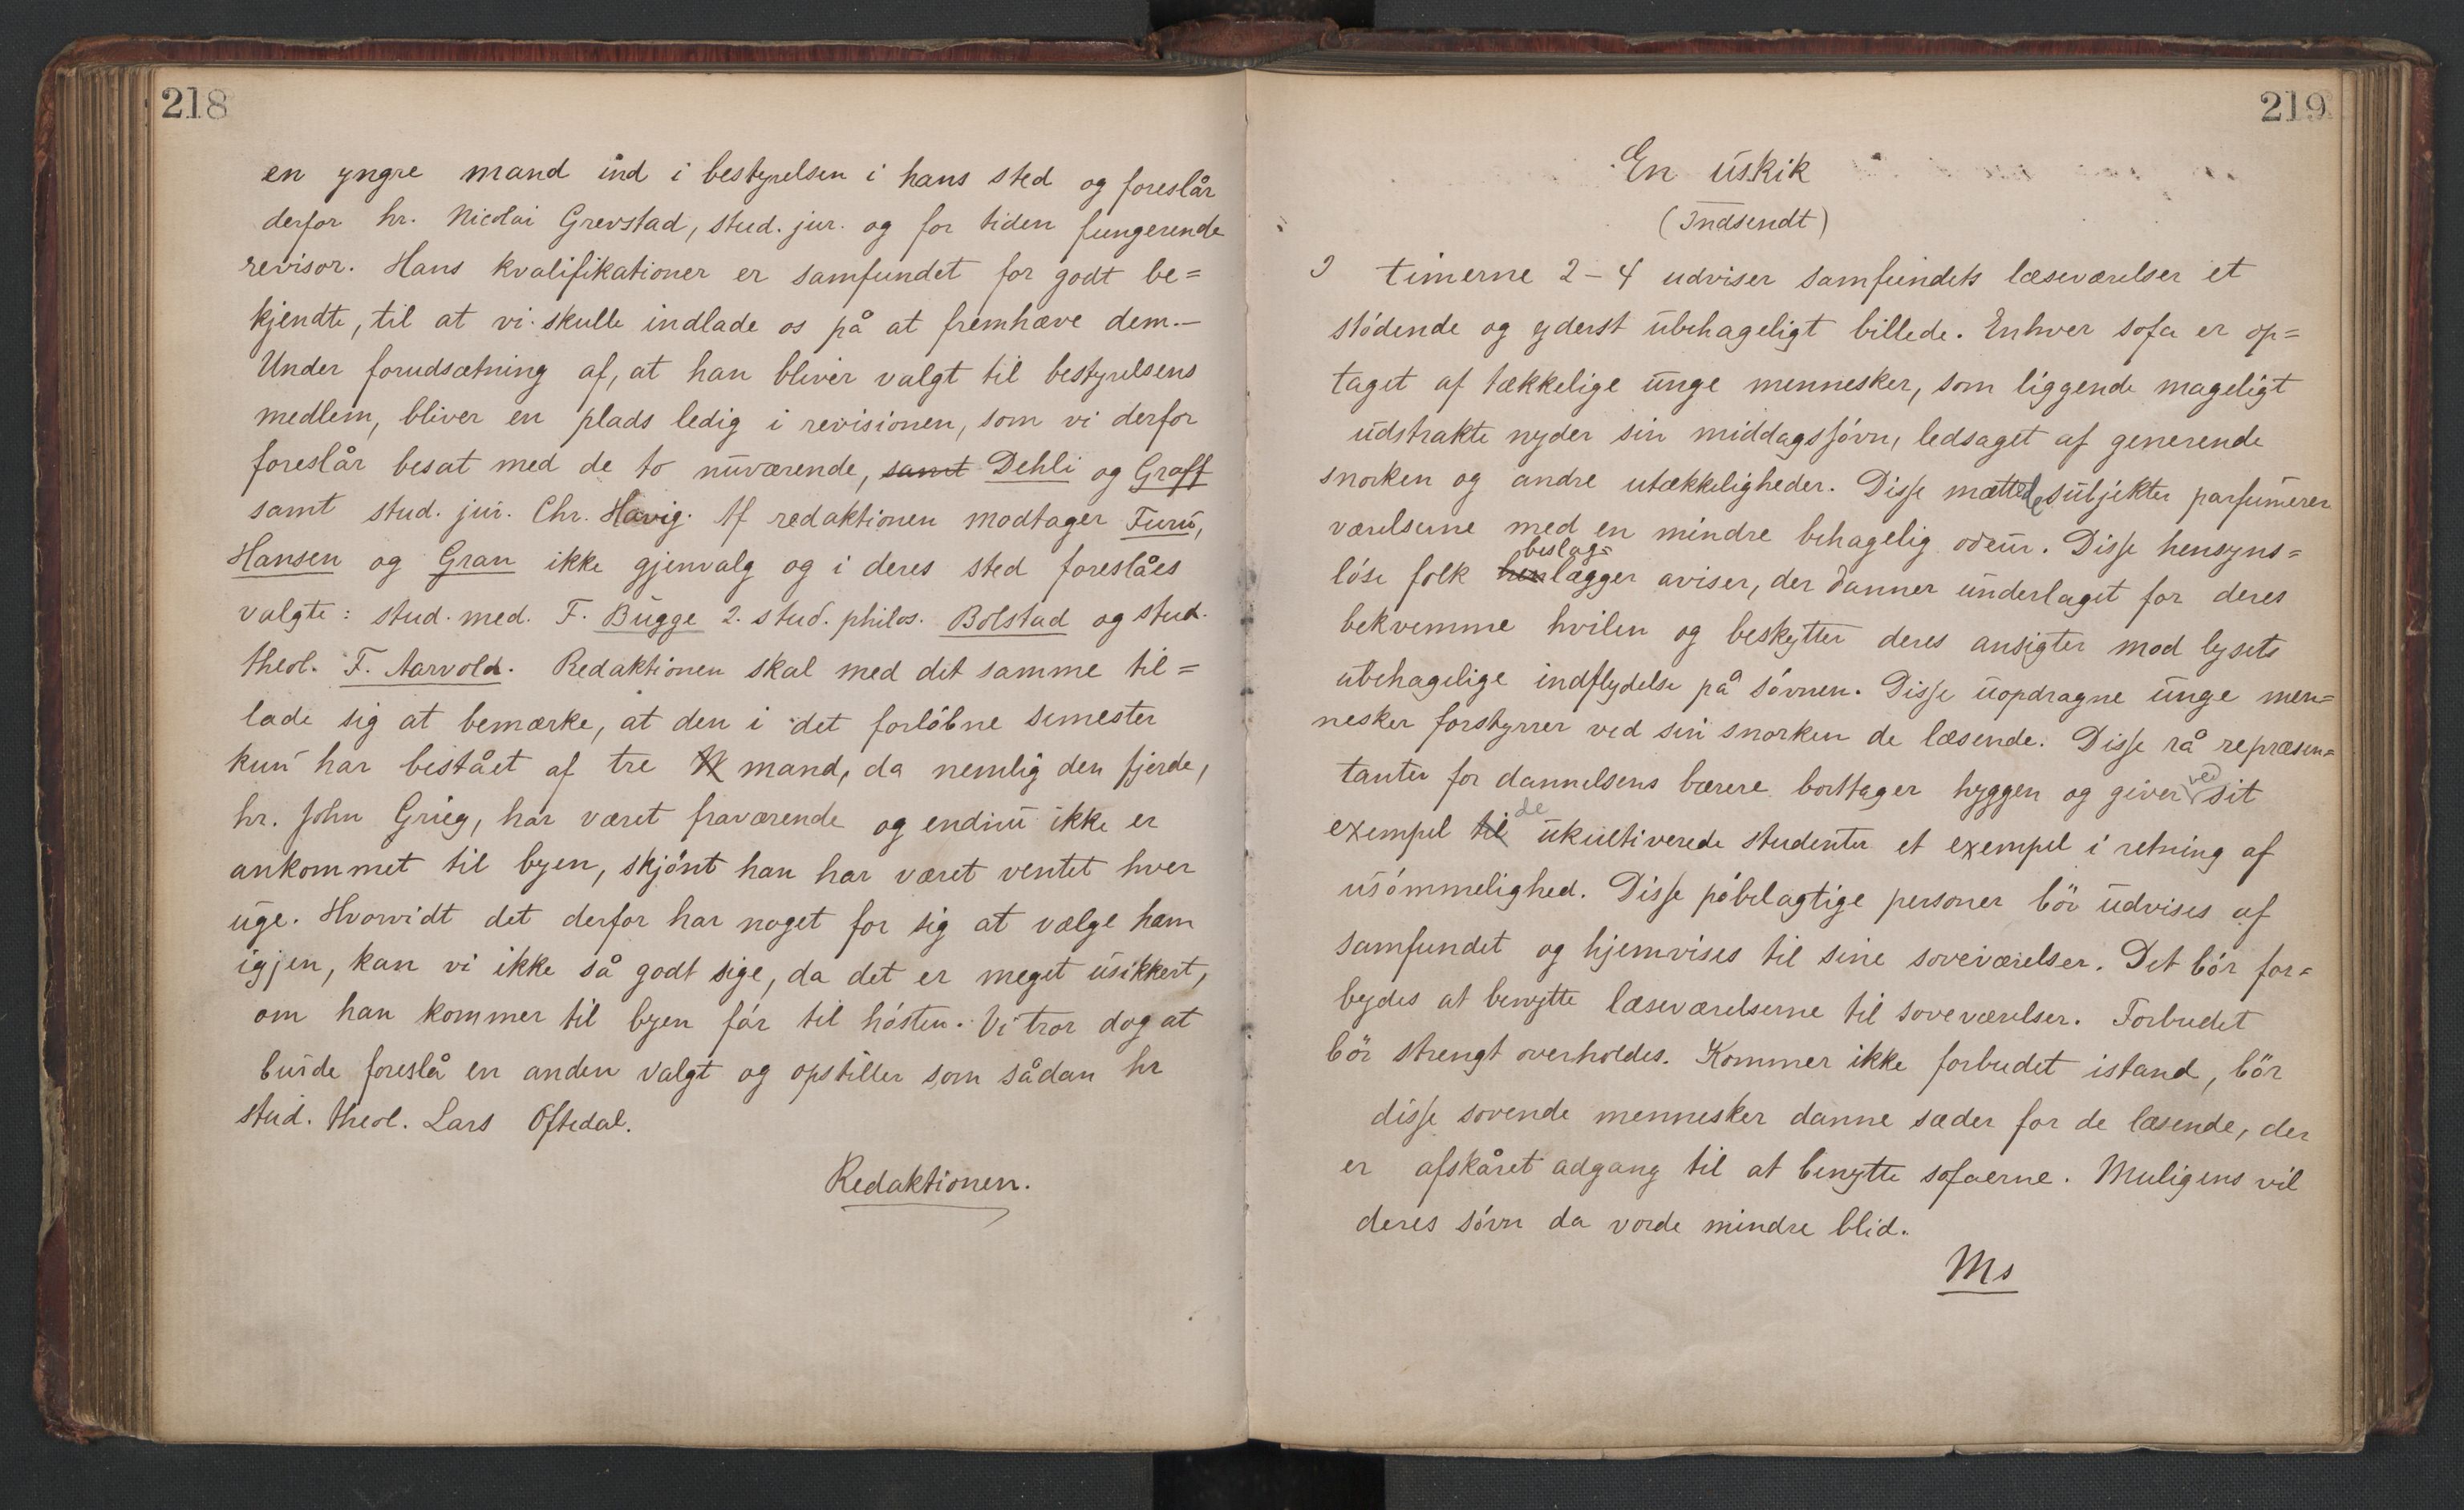 218
en yngre mand ind i bestyrelsen i hans sted og foreslår
derfor hr. Nicolai Grevstad, stud. jur. og for tiden fungerende
revisor. Hans kvalifikationer er samfundet for godt be=
kjendte, til at vi skulle indlade os på at fremhæve dem.—
Under forudsætning af, at han bliver valgt til bestyrelsens
medlem, bliver en plads ledig i revisionen, som vi derfor
foreslår besat med de to nuværende, samt Dehli og Graff
samt stud. jur. Chr. Havig. Af redaktionen modtager Furu,
Hansen og Gran ikke gjenvalg og i deres sted foreslåes
valgte: stud. med. F. Bugge 2. stud. philos. Bolstad og stud.
theol. F. Aarvold. Redaktionen skal med det samme til=
lade sig at bemærke, at den i det forløbne semester
kun har bestået af tre mand, da nemlig den fjerde,
hr. John Grieg, har været fraværende og endnu ikke er
ankommet til byen, skjönt han har været ventet hver
uge. Hvorvidt det derfor har noget for sig at vælge ham
igjen, kan vi ikke så godt sige, da det er meget usikkert,
om han kommer til byen før til høsten. Vi tror dog at
burde foreslå en anden valgt og opstiller som sådan hr
stud. theol. Lars Oftedal.
Redaktionen.
219
En uskik
(Indsendt)
I timerne 2–4 udviser samfundets læseværelser et
stødende og yderst ubehageligt billede. Enhver sofa er op=
taget af tækkelige unge mennesker, som liggende mageligt
udstrakte nyder sin middagssøvn, ledsaget af generende
snorken og andre utækkeligheder. Disse mættede subjekter parfumerer
værelserne med en mindre behagelig odeur. Disse hensyns=
løse folk hen beslag=lægger aviser, der danner underlaget for deres
bekvemme hvilen og beskytter deres ansigter mod lysets
ubehagelige indflydelse på søvnen. Disse uopdragne unge men=
nesker forstyrrer ved sin snorken de læsende. Disse rå repræsen=
tanter for dannelsens bærere borttager hyggen og giver ved sit
exempel til de ukultiverede studenter et exempel i retning af
usømmelighed. Disse pøbelagtige personer bör udvises af
samfundet og hjemvises til sine soveværelser. Det bør for=
bydes at benytte læseværelserne til soveværelser. Forbudet
bör strengt overholdes. Kommer ikke forbudet istand, bör
disse sovende mennesker danne sæder for de læsende, der
er afskåret adgang til at benytte sofaerne. Muligens vil
deres søvn da vorde mindre blid.
Ms